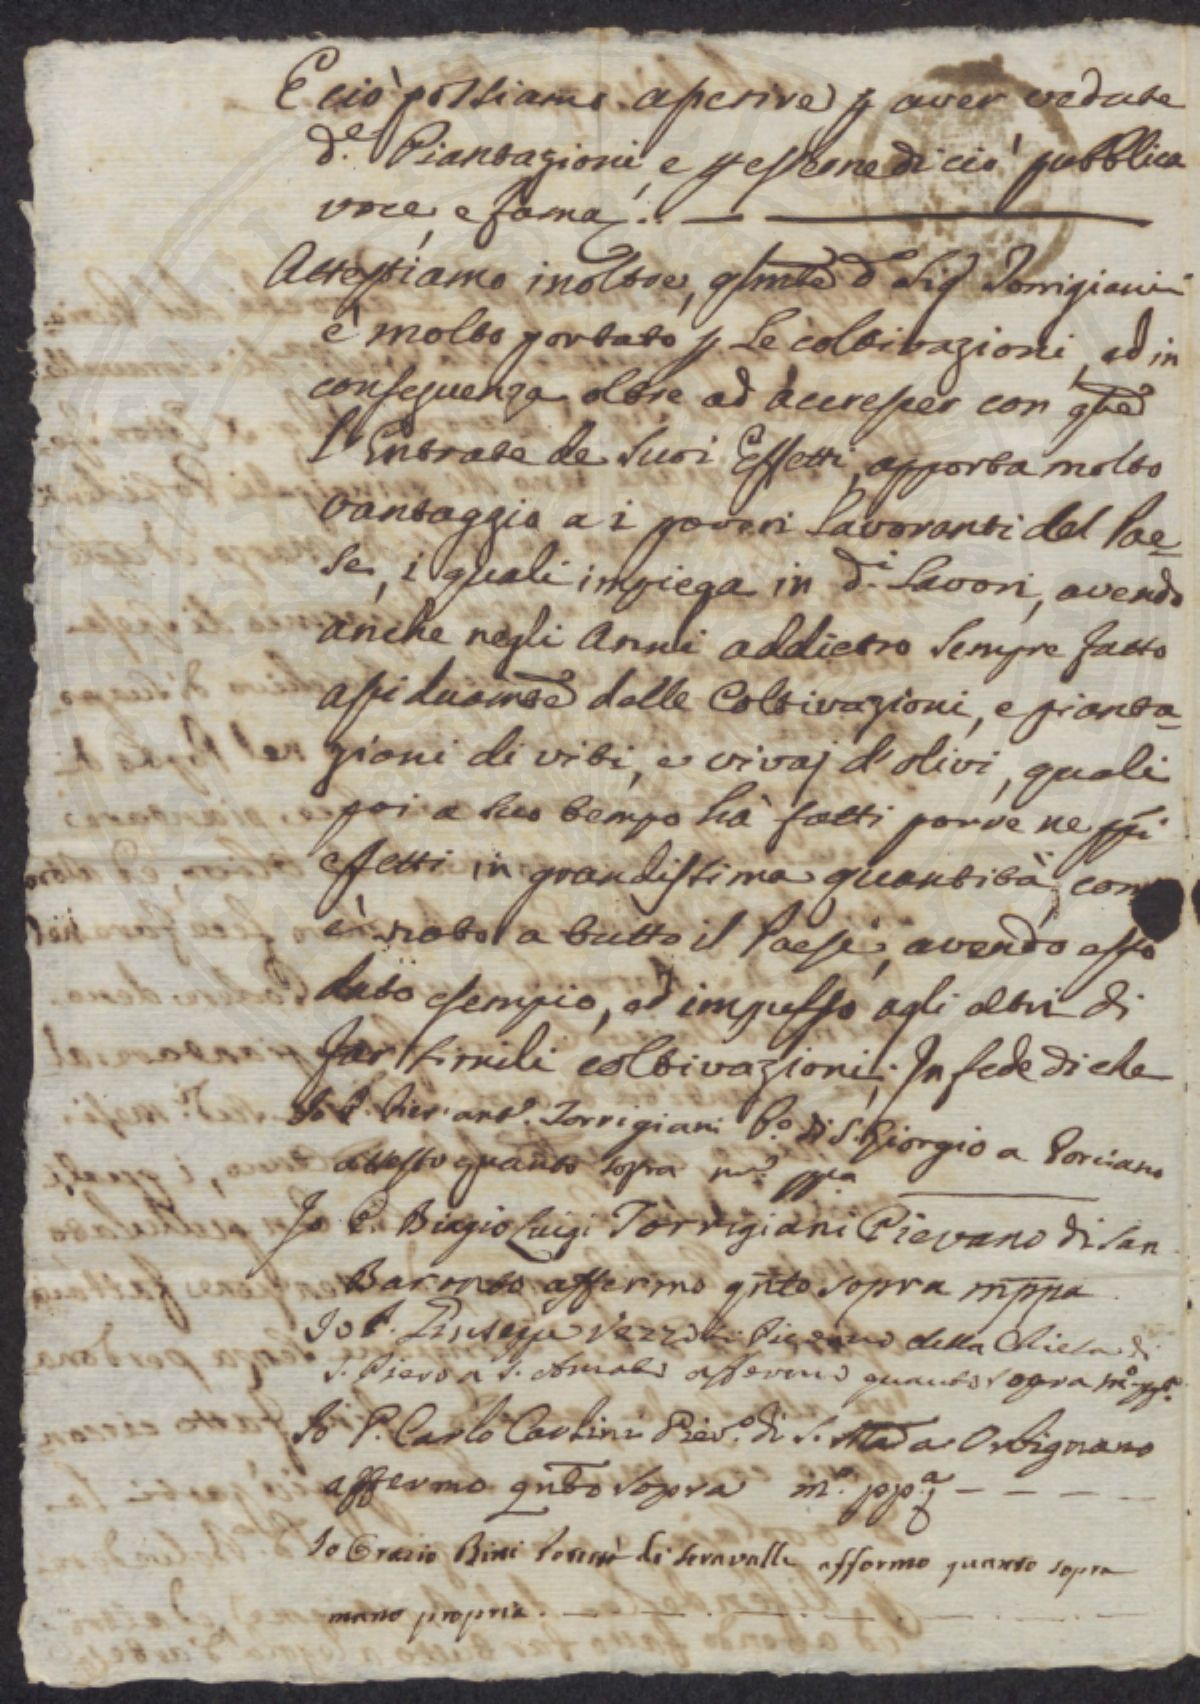 E ciò possiamo asserire p aver vedute
d.e Piantagioni, e p esserne di ciò pubblica
voce, e fama. —
Attestiamo inoltre, qlmte d.o Sig.r Torrigiani
è molto portato p le coltivazioni, ed in
conseguenza oltre ad accrescer con qste
l'Entrate de suoi Effetti, apporta molto
vantaggio a i poveri Lavoranti del Pae=
se, i quali impiega in d.i Lavori, avendo
anche negli Anni addietro sempre fatto
assiduamte delle Coltivazioni, e pianta=
zioni di viti, e vivaj d'olivi, quali
poi a suo tempo hà fatti porre ne ppi
effetti in grandissima quantità, com
è noto a tutto il Paese, avendo esso
dato esempio, ed impulso agli altri di
far simili coltivazioni. In fede di che
Io P. Pier' Ant.o Torrigiani di S. Giorgio a Porciano
attesto quanto sopra m.o ppa
Io P. Biagio Luigi Torrigiani Pievano di San
Baronto affermo qnto sopra mppa
Io P. Giuseppe Pievano della Chiesa di
S. Piero a S. Amato affermo quanto sopra m.o pp.a
Io P. Carlo Carlini Piev.o di S. a Orbignano
affermo qnto sopra m.o pp.a — — — —
Io Orazio Bini di Seravalle affermo quanto sopra
mano propria. — — — —